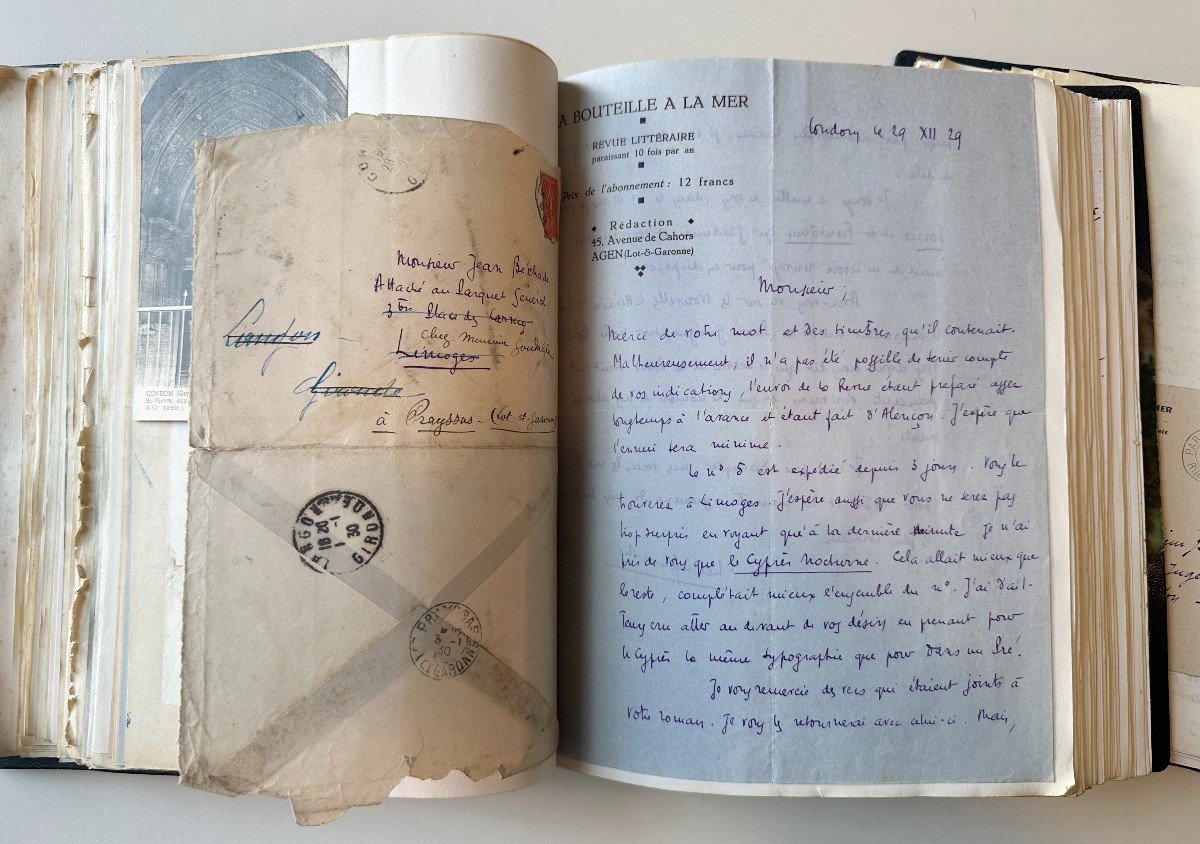 CONDOM (Ger
St-Pierre,
XVIe siècle.)
Monsieur Jean
Attaché au Parquet Général
3 bis Place des Carmes
chez Monsieur
Limoges
Langon
Gironde
à Prayssas - (Lot-et-Garonne)
LANGON
GIRONDE
18 20
1 - 1
30
PRAYSSAS
LOT-ET-GARONNE
A BOUTEILLE A LA MER
REVUE LITTÉRAIRE
paraissant 10 fois par an
Prix de l'abonnement : 12 francs
Rédaction
45, Avenue de Cahors
AGEN (Lot-&-Garonne)
Condom le 29 XII 29
Monsieur,
Merci de votre mot et des timbres qu'il contenait.
Malheureusement, il n'a pas été possible de tenir compte
de vos indications, l'envoi de la Revue étant préparé assez
longtemps à l'avance et étant fait d'Alençon. J'espère que
l'ennui sera minime.
Le n° 5 est expédié depuis 3 jours. Vous le
trouverez à Limoges. J'espère aussi que vous ne serez pas
trop surpris en voyant qu'à la dernière minute je n'ai
pris de vous que le Cyprès Nocturne. Cela allait mieux que
le reste, complétait mieux l'ensemble du n°. J'ai d'ail-
leurs cru aller au devant de vos désirs en prenant pour
le Cyprès la même typographie que pour Dans un Pré.
Je vous remercie des vers qui étaient joints à
votre roman. Je vous les retournerai avec celui-ci. Mais,